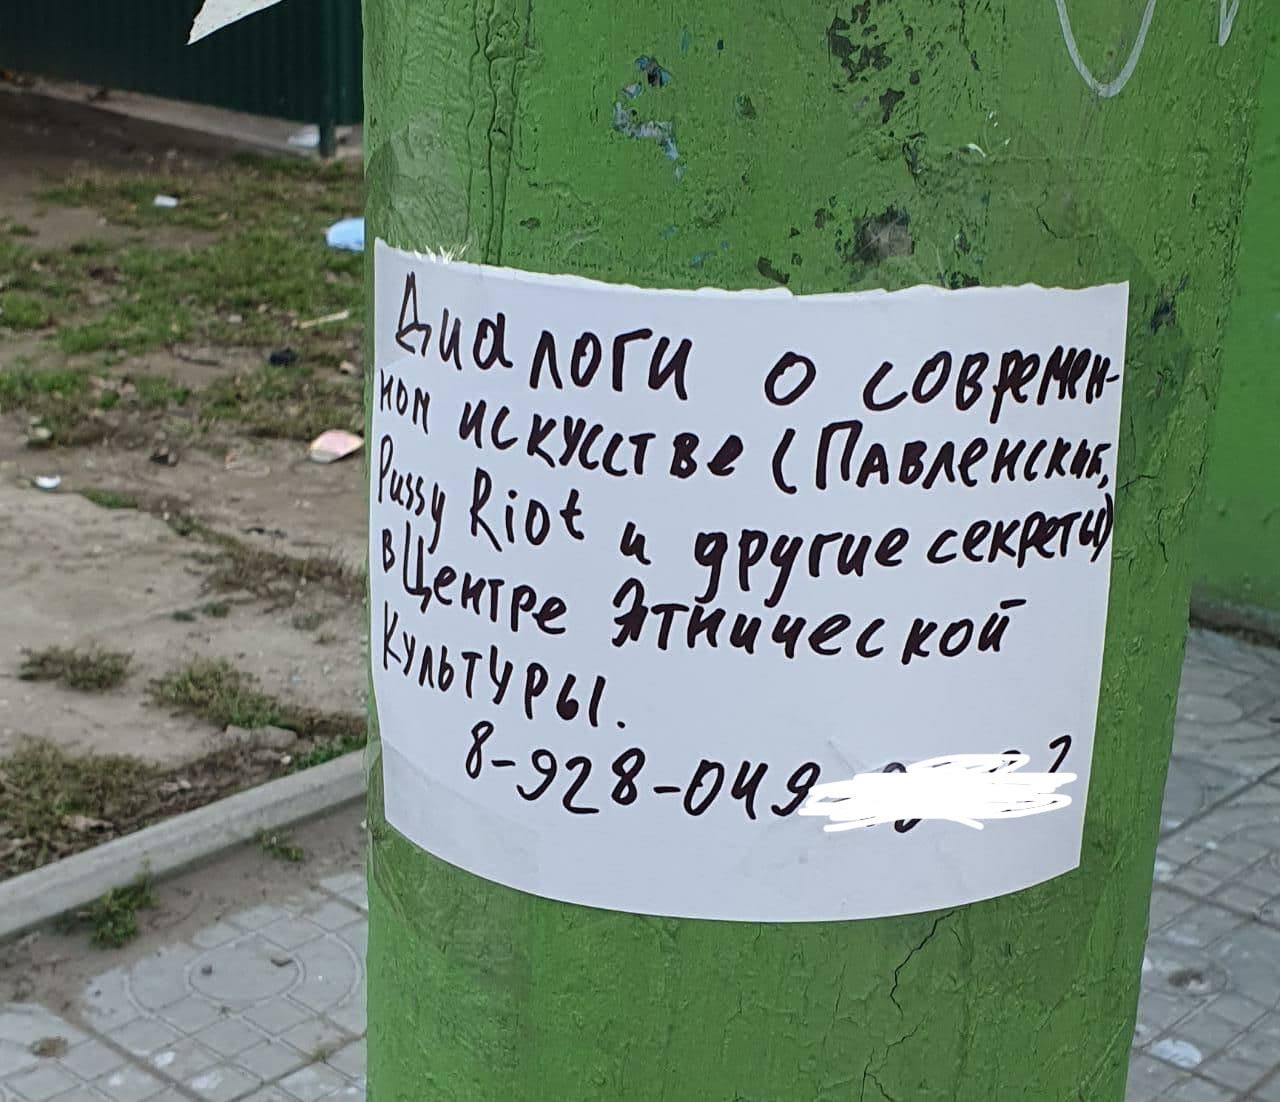 Диалоги о современ-
ном искусстве (Павленский,
Pussy Riot и другие секреты)
в Центре Этнической
Культуры.
8-928-049